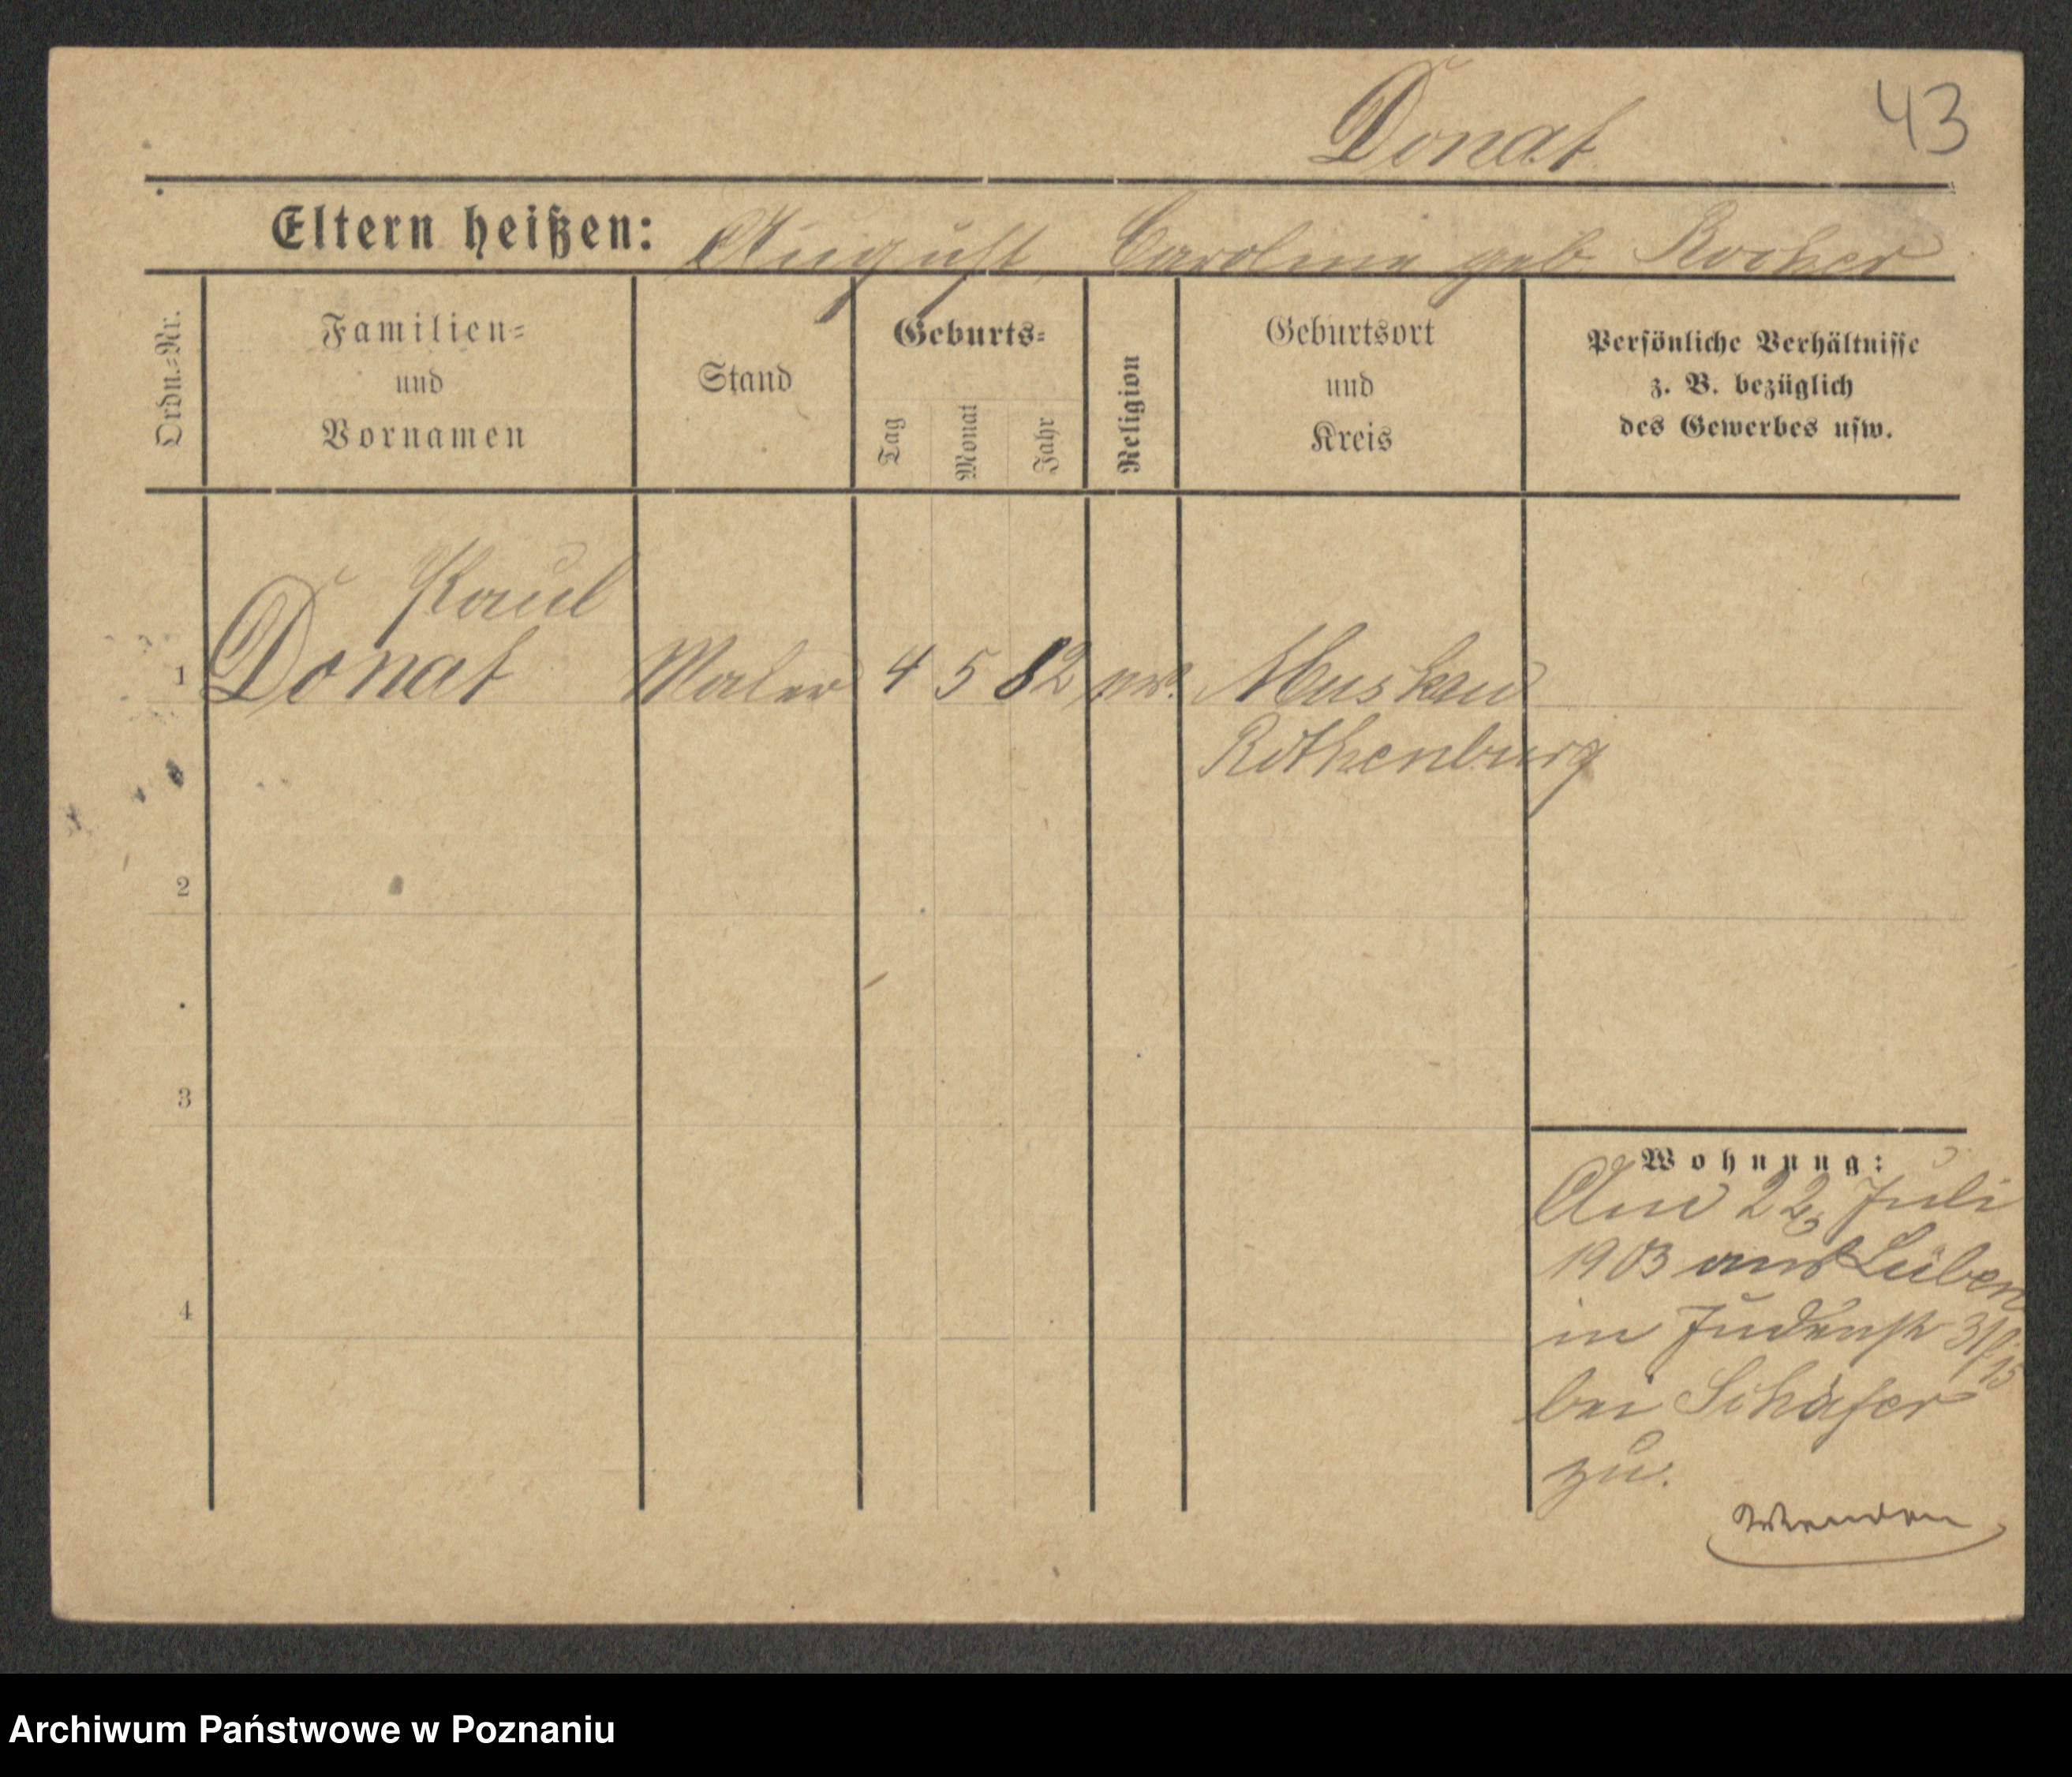 43
Donat
Eltern heißen: August Caroline geb.
Ordn.=Nr.
Familien=
und
Vornamen
Stand
Geburts=
Tag
Monat
Jahr
Religion
Geburtsort
und
Kreis
Persönliche Verhältnisse
z. B. bezüglich
des Gewerbes usw.
Paul
1 Donat Maler 4 5 82 ev. Muskau
Rothenburg
2
3
4
Wohnung:
Am 22. Juli
1903 aus Lüben
in Judenstr
bei Schäfer
zu.
Wenden
Archiwum Państwowe w Poznaniu